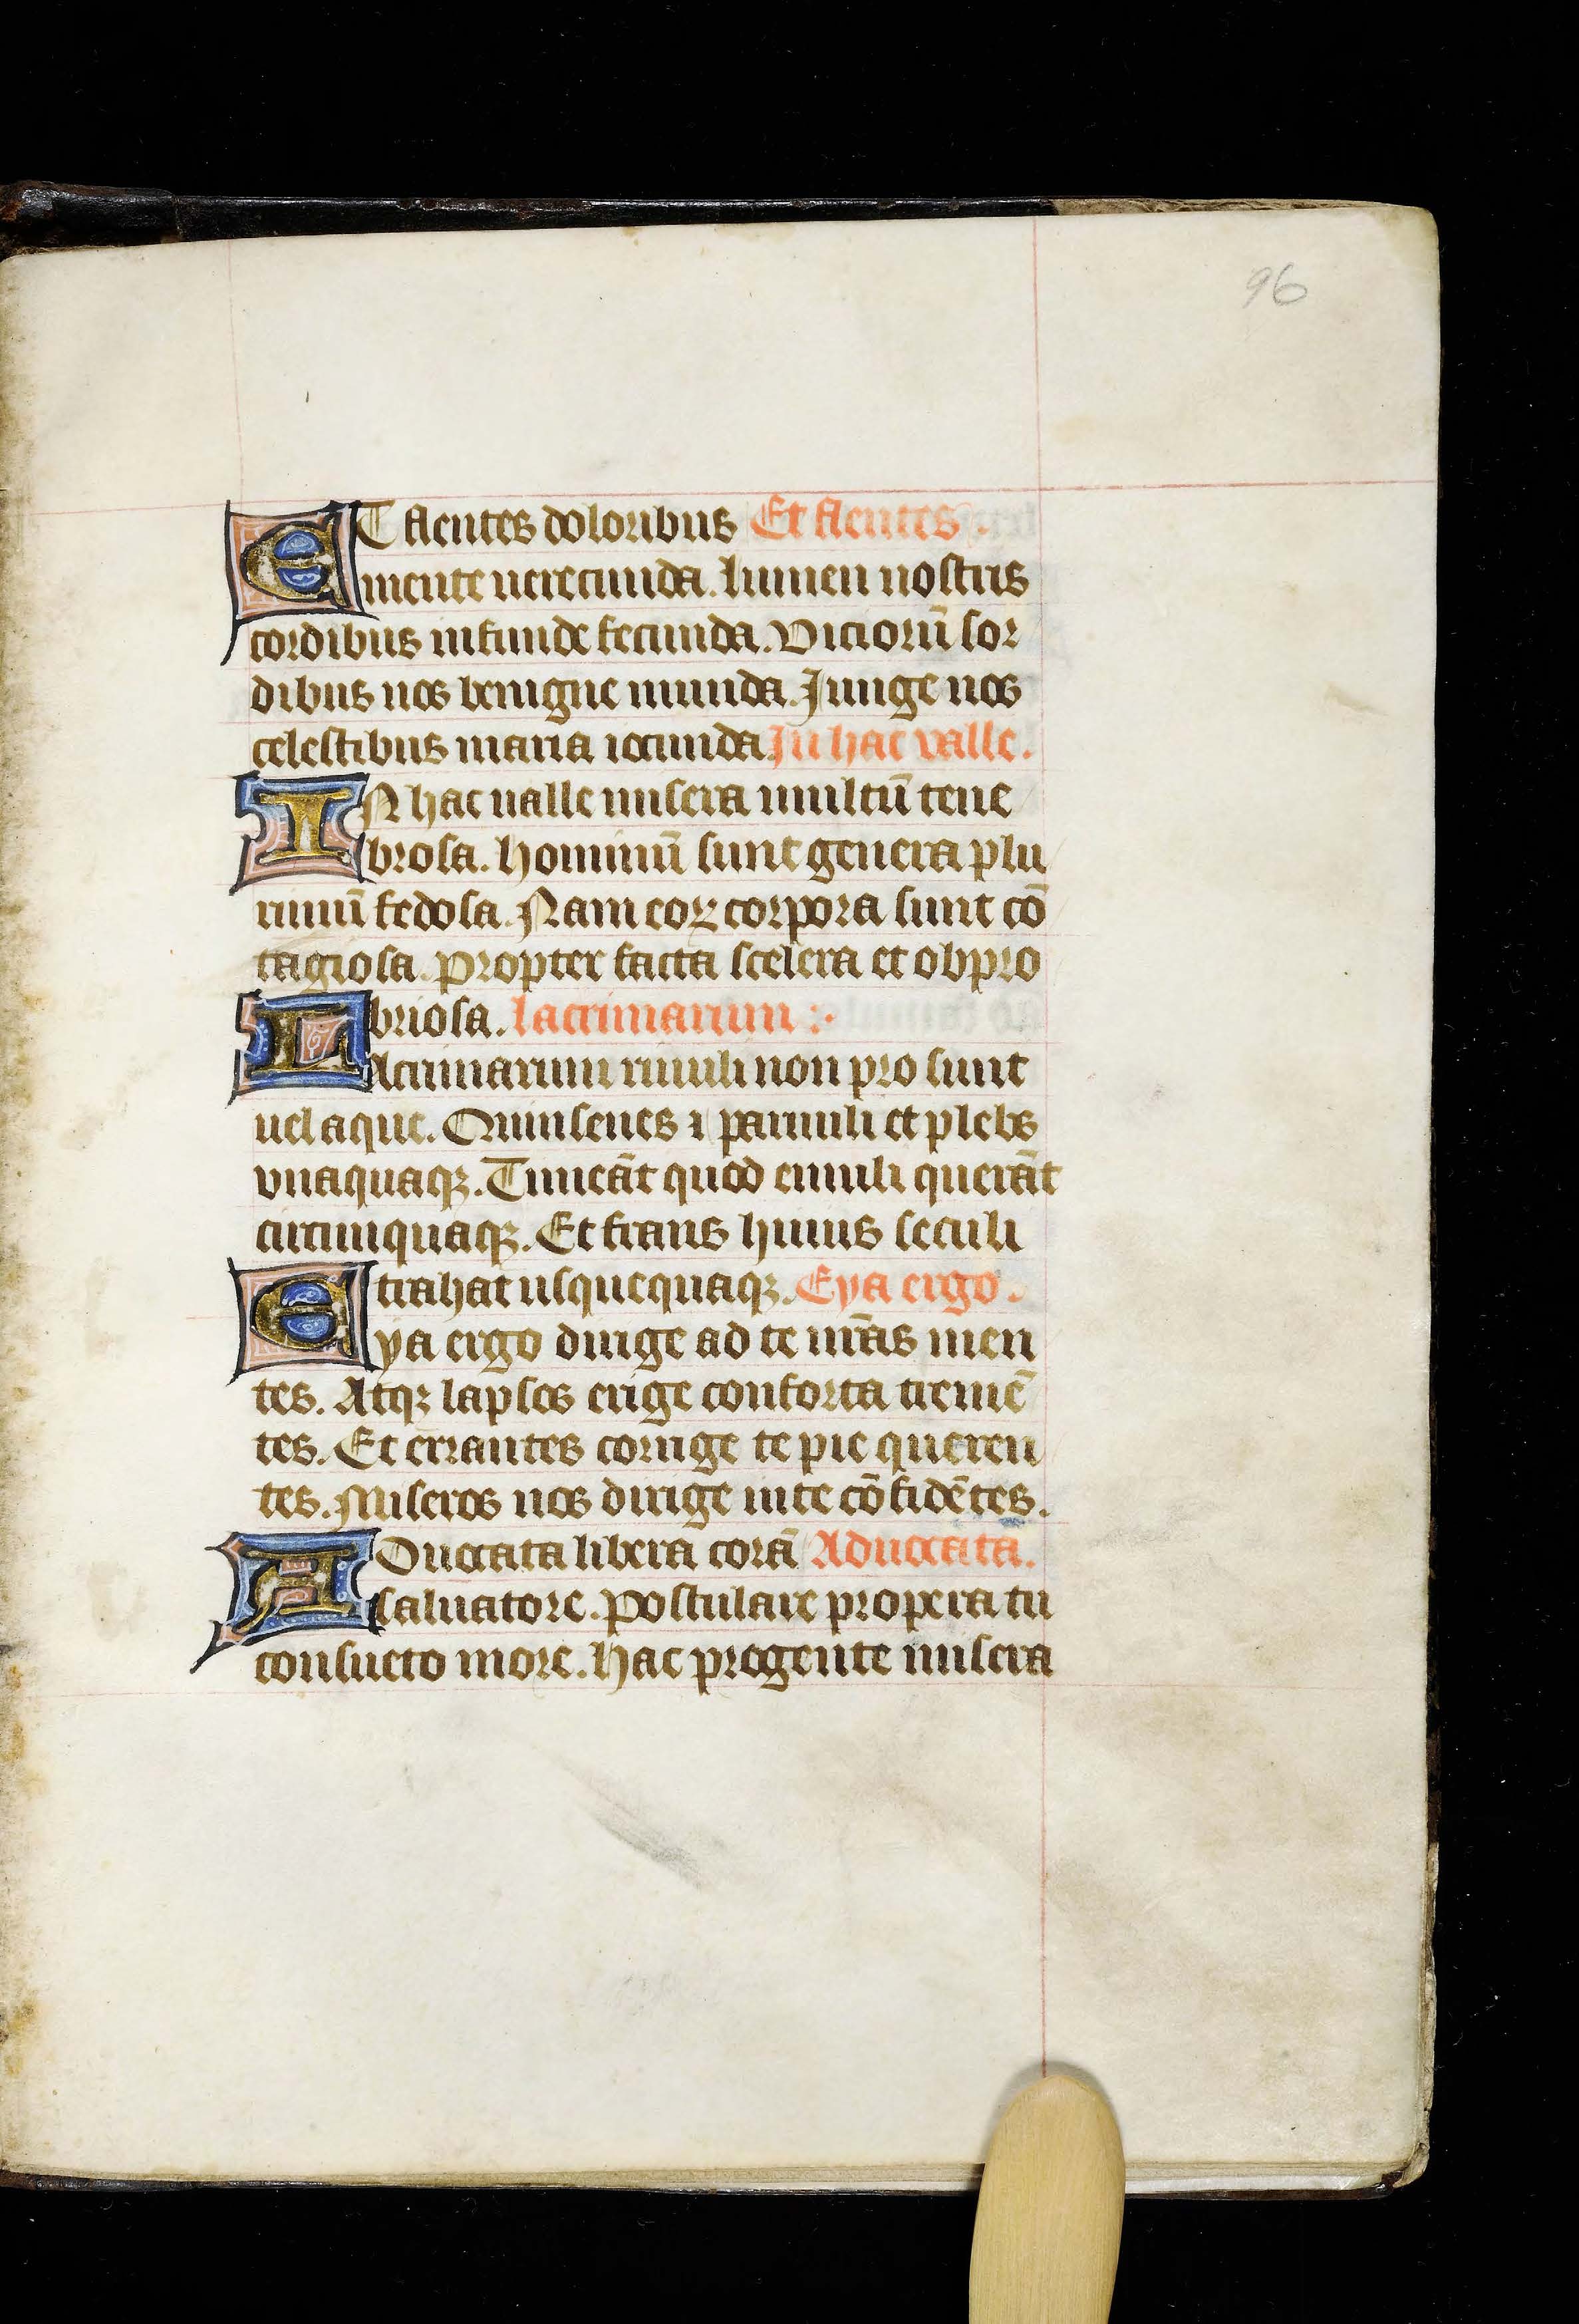 96
ET flentes doloribus Et flentes.
mente uerecunda. lumen nostris
cordibus infunde fecunda. Viciorū sor
dibus nos benigne munda. Junge nos
celestibus maria iocunda. In hac valle.
IN hac ualle misera multū tene
brosa. hominū sunt genera plu
rimū fedosa. Nam eoꝝ corpora sunt cō
tagiosa. propter facta scelera et obpro
briosa. lacrimarum :·
LAcrimarum riuuli non pro sunt
uel aque. Quin senes ⁊ paruuli et plebs
vnaquaqꝫ. Timeāt quod emuli querāt
circumquaqꝫ. Et fraus huius seculi
trahat usquequaqꝫ. Eya ergo.
Eya ergo dirige ad te nr̄as men
tes. Atqꝫ lapsos erige conforta tremē
tes. Et errantes corrige te pie queren
tes. Miseros nos dirige in te cōfidētes.
ADuocata libera corā Aduocata.
saluatore. postulare propera tu
consueto more. hac progente misera